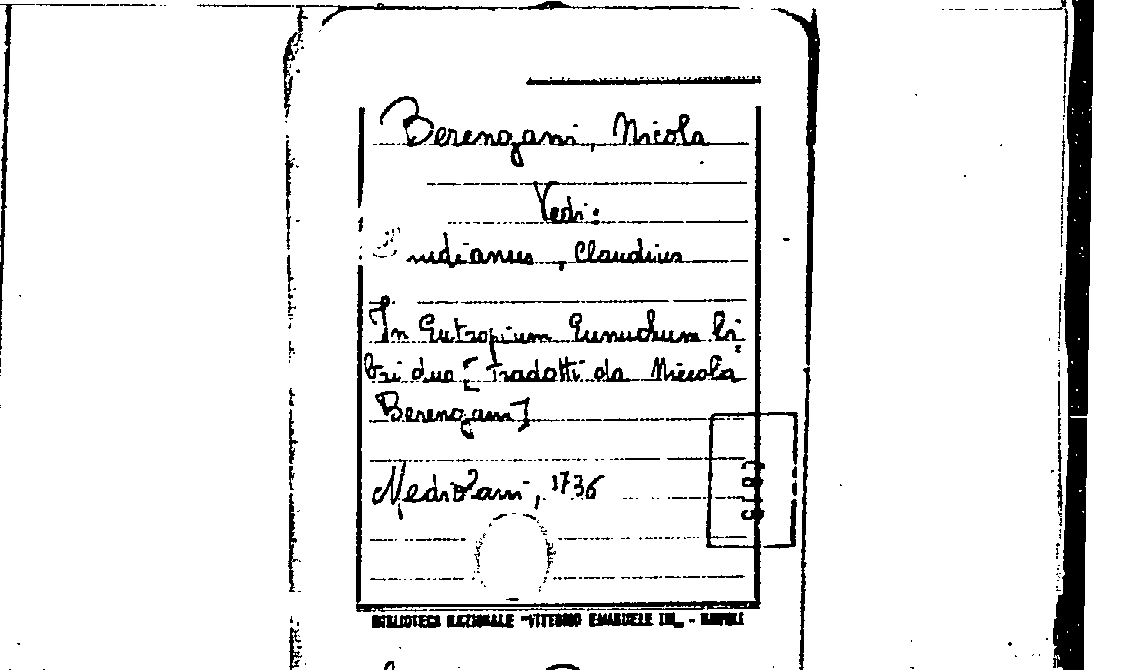 Berengani, Nicola
Vedi:
udianus, Claudius
In Eutropium Eunuchum li
bri duo [Tradotti da Niccola
Berengani]
Mediolani, 1736
BIBLIOTECA NAZIONALE "VITTORIO EMANUELE III" - NAPOLI